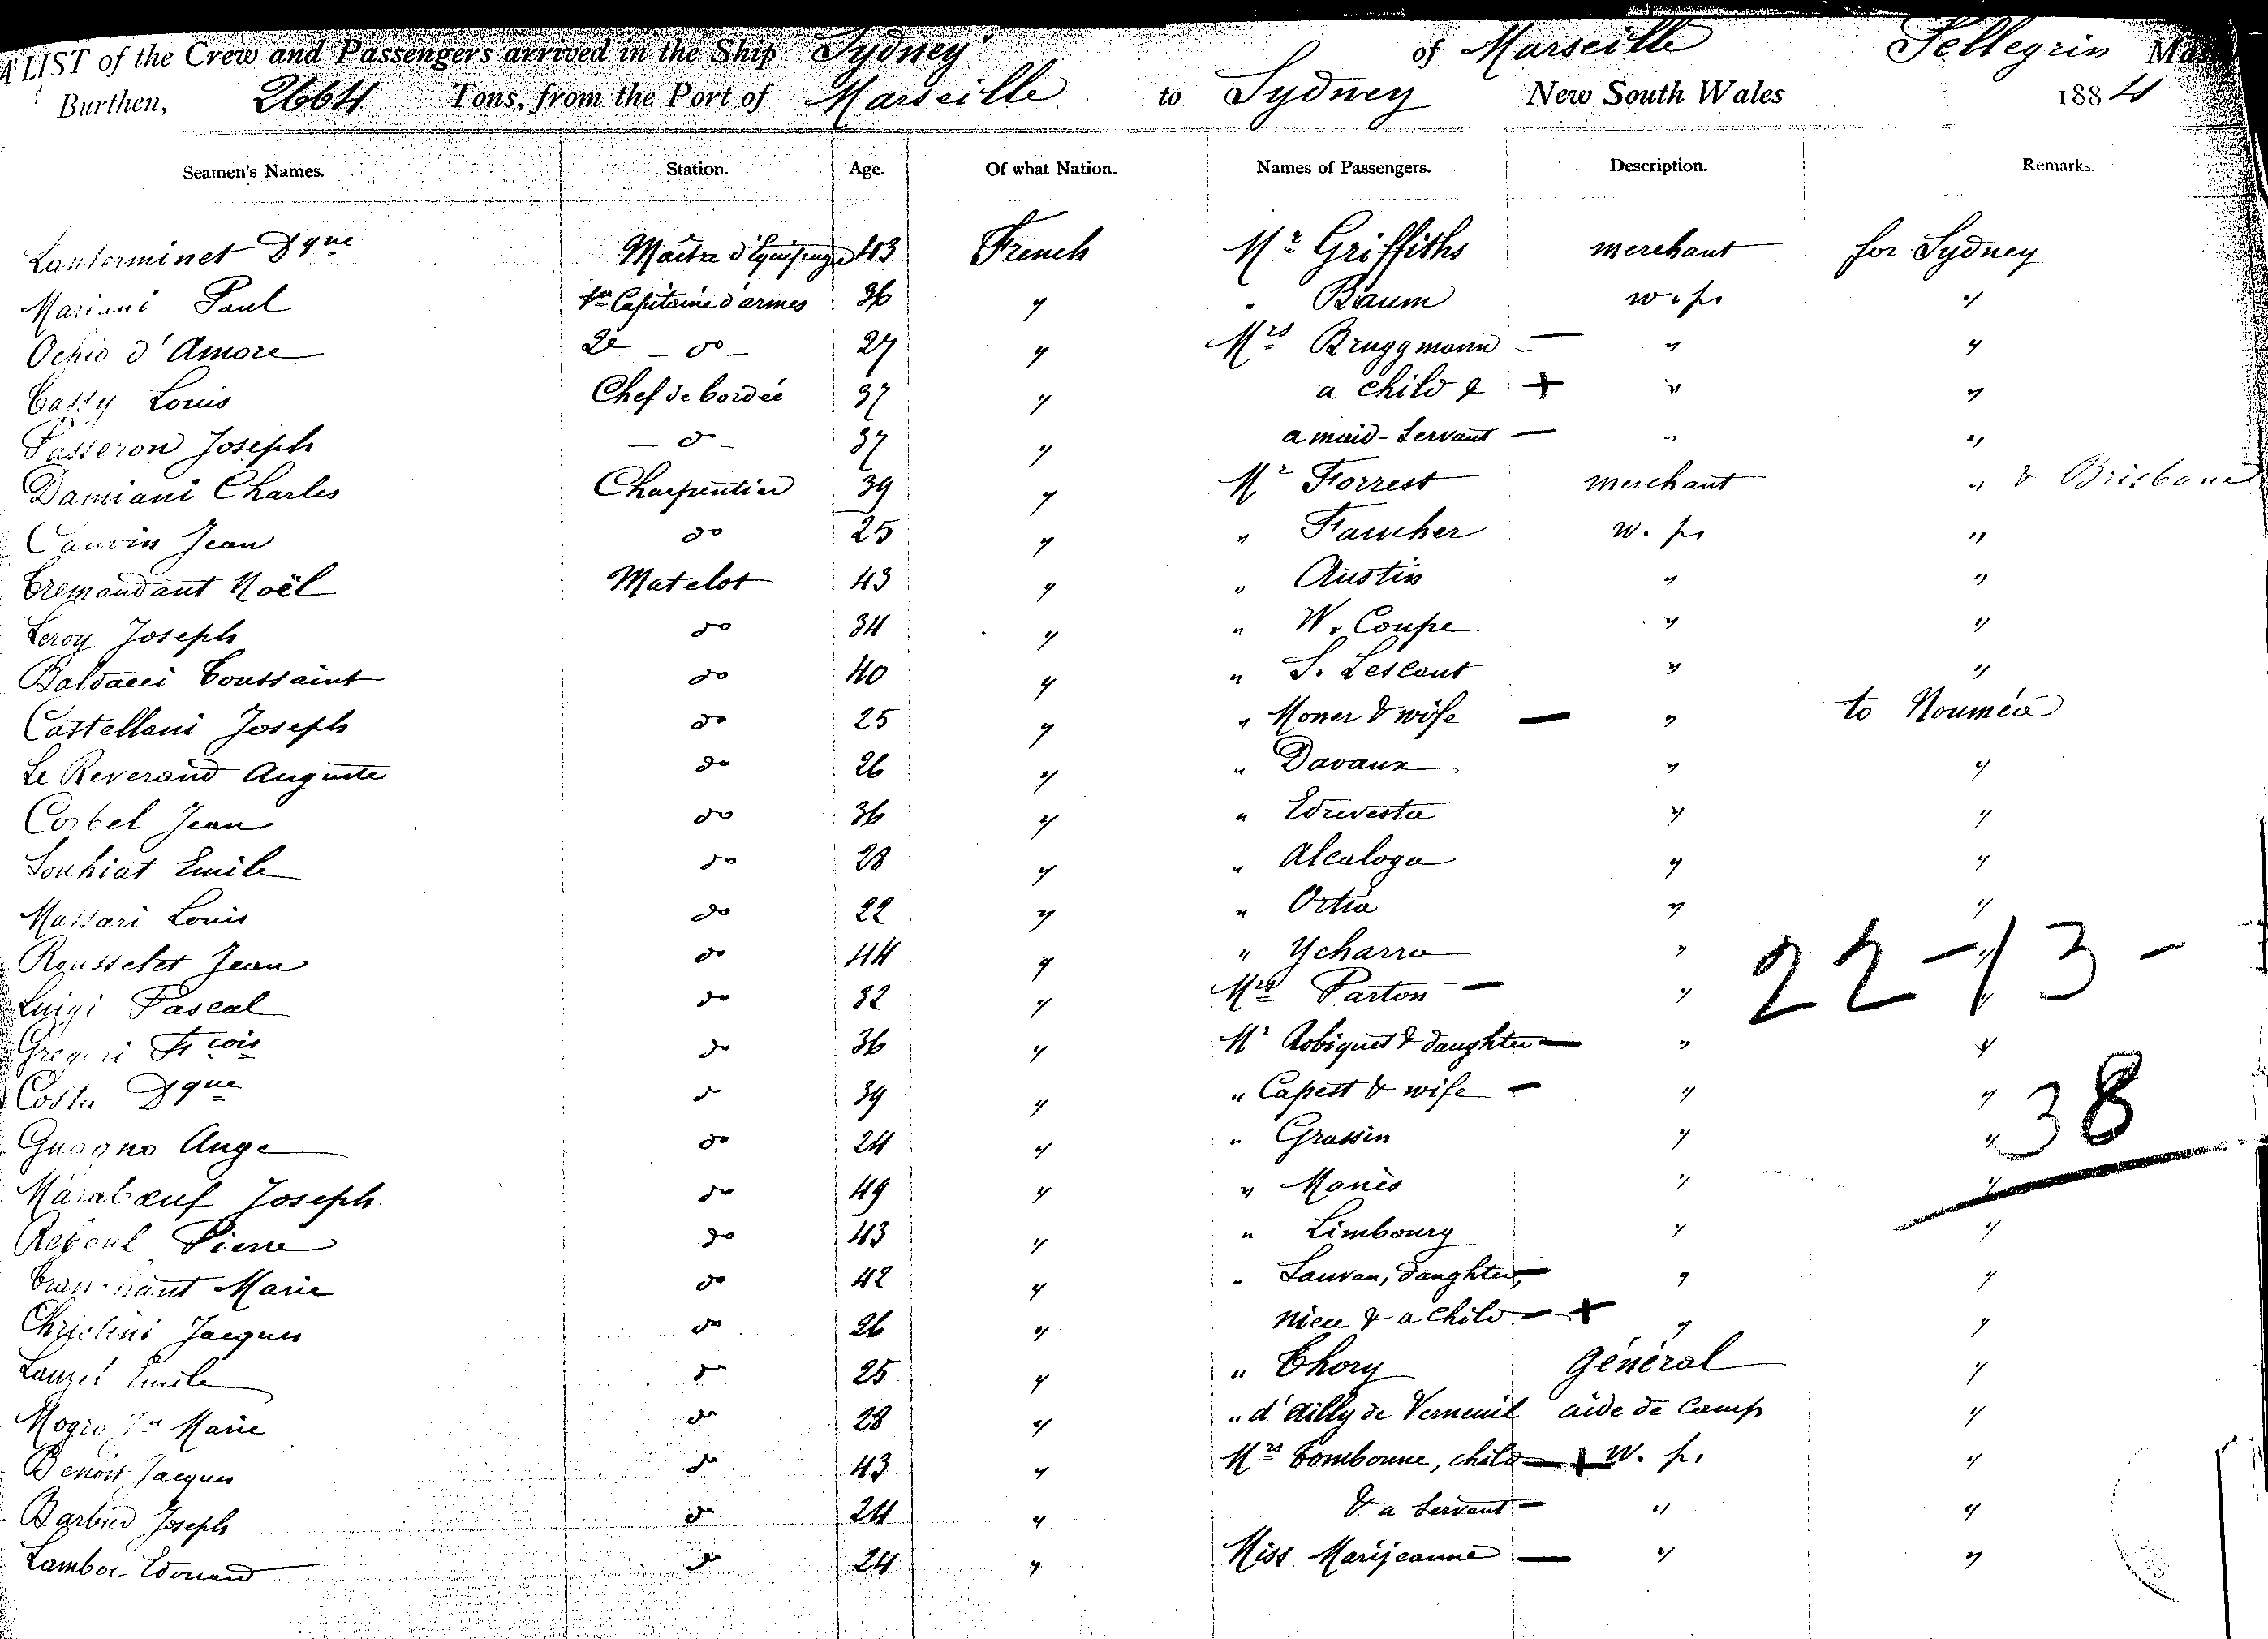 A LIST of the Crew and Passengers arrived in the Ship Sydney of Marseille Pellegrin Mas
Burthen, 2664 Tons, from the Port of Marseille to Sydney New South Wales 1884
Seamen's Names. Station. Age. Of what Nation. Names of Passengers. Description. Remarks.
Lanterminet Dque Maître d'Equipage 43 French Mr Griffiths merchant for Sydney
Mariani Paul 1er Capitaine d'armes 36 " " Baum w. pr "
Ochio d'Amore 2e - do - 27 " Mrs Bruggmann — " "
Cassy Louis Chef de bordée 37 " a child & + " "
Passeron Joseph - do - 37 " a maid-servant — " "
Damiani Charles Charpentier 39 " Mr Forrest merchant " & Brisbane
Cauvin Jean do 25 " " Faucher w. pr "
Tremandant Noël Matelot 43 " " Austin " "
Leroy Joseph do 34 " " W. Coupe " "
Baldacci Toussaint do 40 " " S. Lescaut " "
Castellani Joseph do 25 " " Moner & wife — " to Nouméa
Le Reverand Auguste do 26 " " Davaux " "
Corbel Jean do 36 " " Edrevesta " "
Souhiat Emile do 28 " " Alcaloga " "
Massari Louis do 22 " " Ortia " "
Rousselet Jean do 44 " " Ycharra " " 22 - 13 -
Luigi Pascal do 32 " Mrs Parton — " "
Gregori Fcois do 36 " Mr Robiquet & daughter — " "
Costa Dque do 39 " " Capest & wife — " " 38
Guagno Ange do 24 " " Grassin " "
Maraboeuf Joseph do 49 " " Manès " "
Reboul Pierre do 43 " " Limbourg " "
Tranchant Marie do 42 " " Lauvan, daughter, — " "
Jacques do 26 " niece & a child — + " "
Lauzet Emile do 25 " " Thory Général "
Mogro Marie do 28 " " d'Ailly de Verneuil aide de Camp "
Benoit Jacques do 43 " Mrs Tombonne, child — + W. pr. "
Joseph do 24 " & a servant — " "
Lamboc Edouard do 24 " Miss Marijeanne — " "